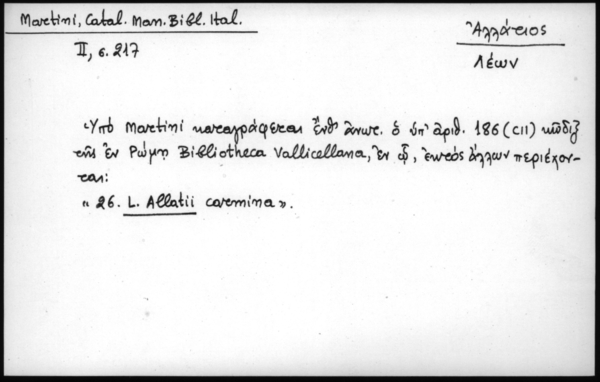 Martini, Catal. Man. Bibl. Ital.
II, σ. 217
Ἀλλάτιος
Λέων
Ὑπὸ Martini καταγράφεται ἔνθ' ἀνωτ. ὁ ὑπ' ἀριθ. 186 (CII) κῶδιξ
τῆς ἐν Ρώμῃ Bibliotheca Vallicellana, ἐν ᾧ, ἐκτὸς ἄλλων περιέχον-
ται:
« 26. L. Allatii carmina ».